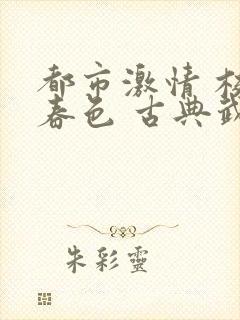 都市激情 校
春色 古典武
朱彩靈